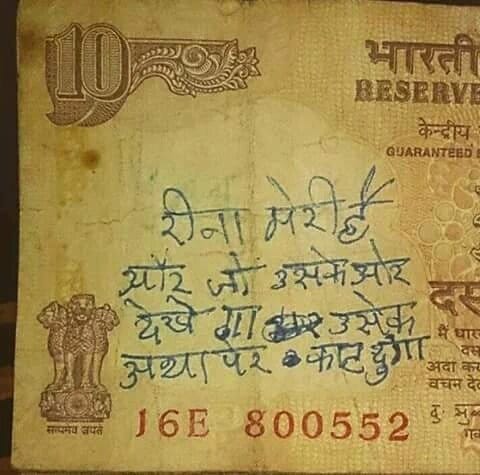 10
भारती
RESERVE
केन्द्रीय
GUARANTEED
रीना मेरी है
और जो उसके ओर
देखे गा उसेक
अथा पेर काट दुगा
दस
मैं धार
अदा कर
वचन दे
सत्यमेव जयते
16E 800552